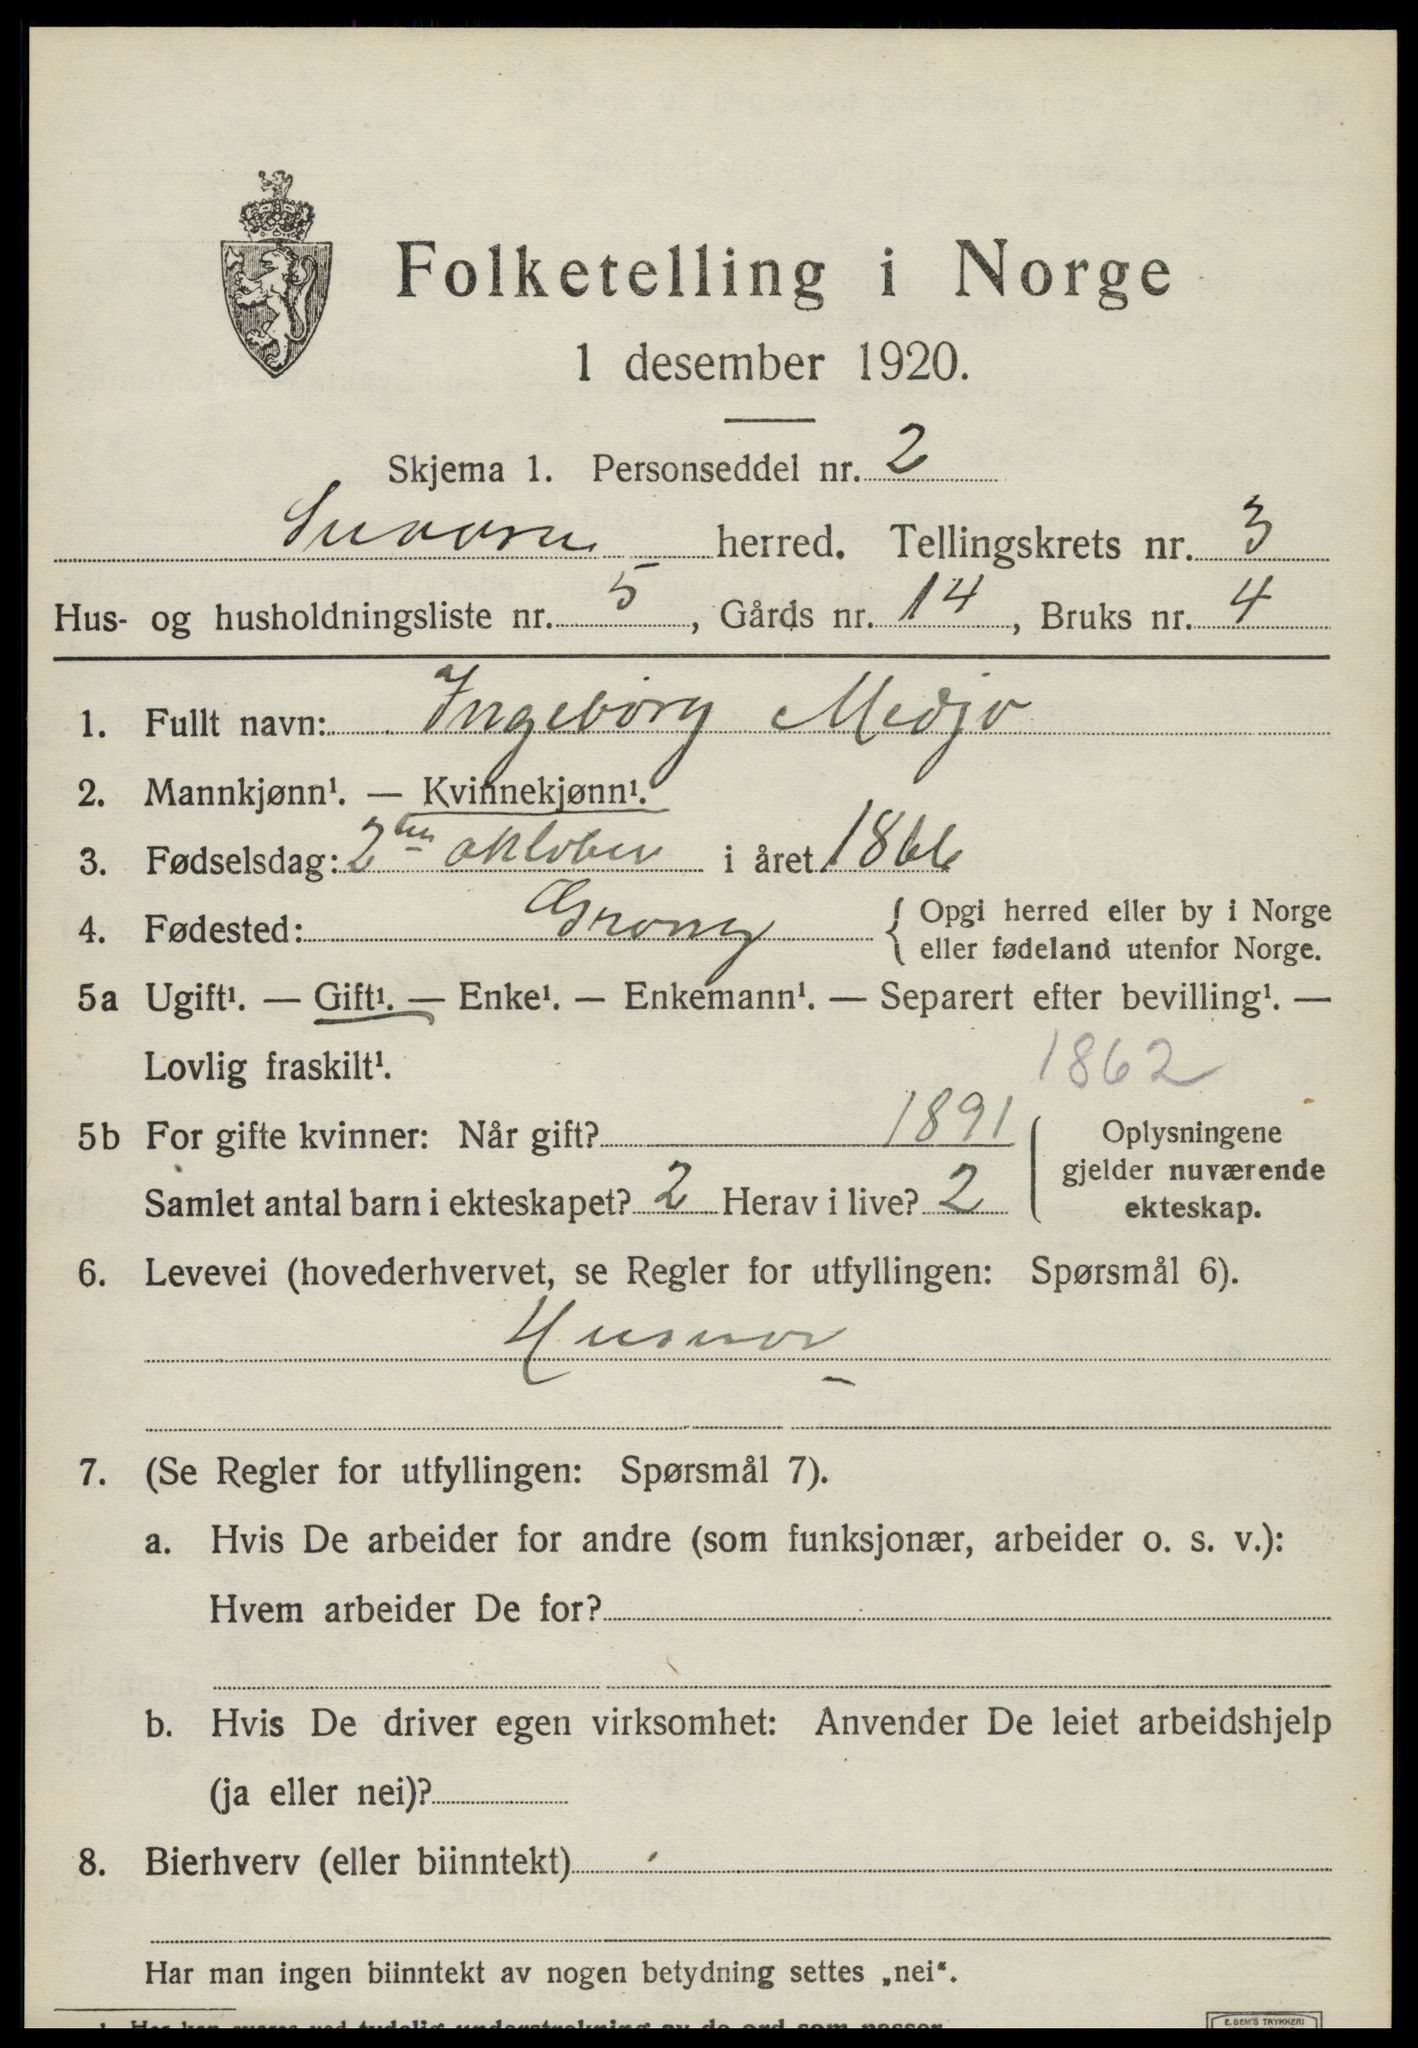 Folketelling i Norge
1 desember 1920.
Skjema 1. Personseddel nr. 2
Snaasa herred. Tellingskrets nr. 3
Hus- og husholdningsliste nr. 5, Gårds nr. 14, Bruks nr. 4
1. Fullt navn: Ingeborg Medjo
2. Mannkjønn¹. — Kvinnekjønn¹.
3. Fødselsdag: 2den oktober i året 1866
4. Fødested: Grong { Opgi herred eller by i Norge
eller fødeland utenfor Norge.
5a Ugift¹. — Gift¹. — Enke¹. — Enkemann¹. — Separert efter bevilling¹. —
Lovlig fraskilt¹. 1862
5b For gifte kvinner: Når gift? 1891
Samlet antal barn i ekteskapet? 2 Herav i live? 2
Oplysningene
gjelder nuværende
ekteskap.
6. Levevei (hovederhvervet, se Regler for utfyllingen: Spørsmål 6).
Husmor
7. (Se Regler for utfyllingen: Spørsmål 7).
a. Hvis De arbeider for andre (som funksjonær, arbeider o. s. v.):
Hvem arbeider De for?
b. Hvis De driver egen virksomhet: Anvender De leiet arbeidshjelp
(ja eller nei)?
8. Bierhverv (eller biinntekt)
Har man ingen biinntekt av nogen betydning settes „nei“.
¹ Her kan svares ved tydelig understrekning av de ord som passer.
E. SEM'S TRYKKERI